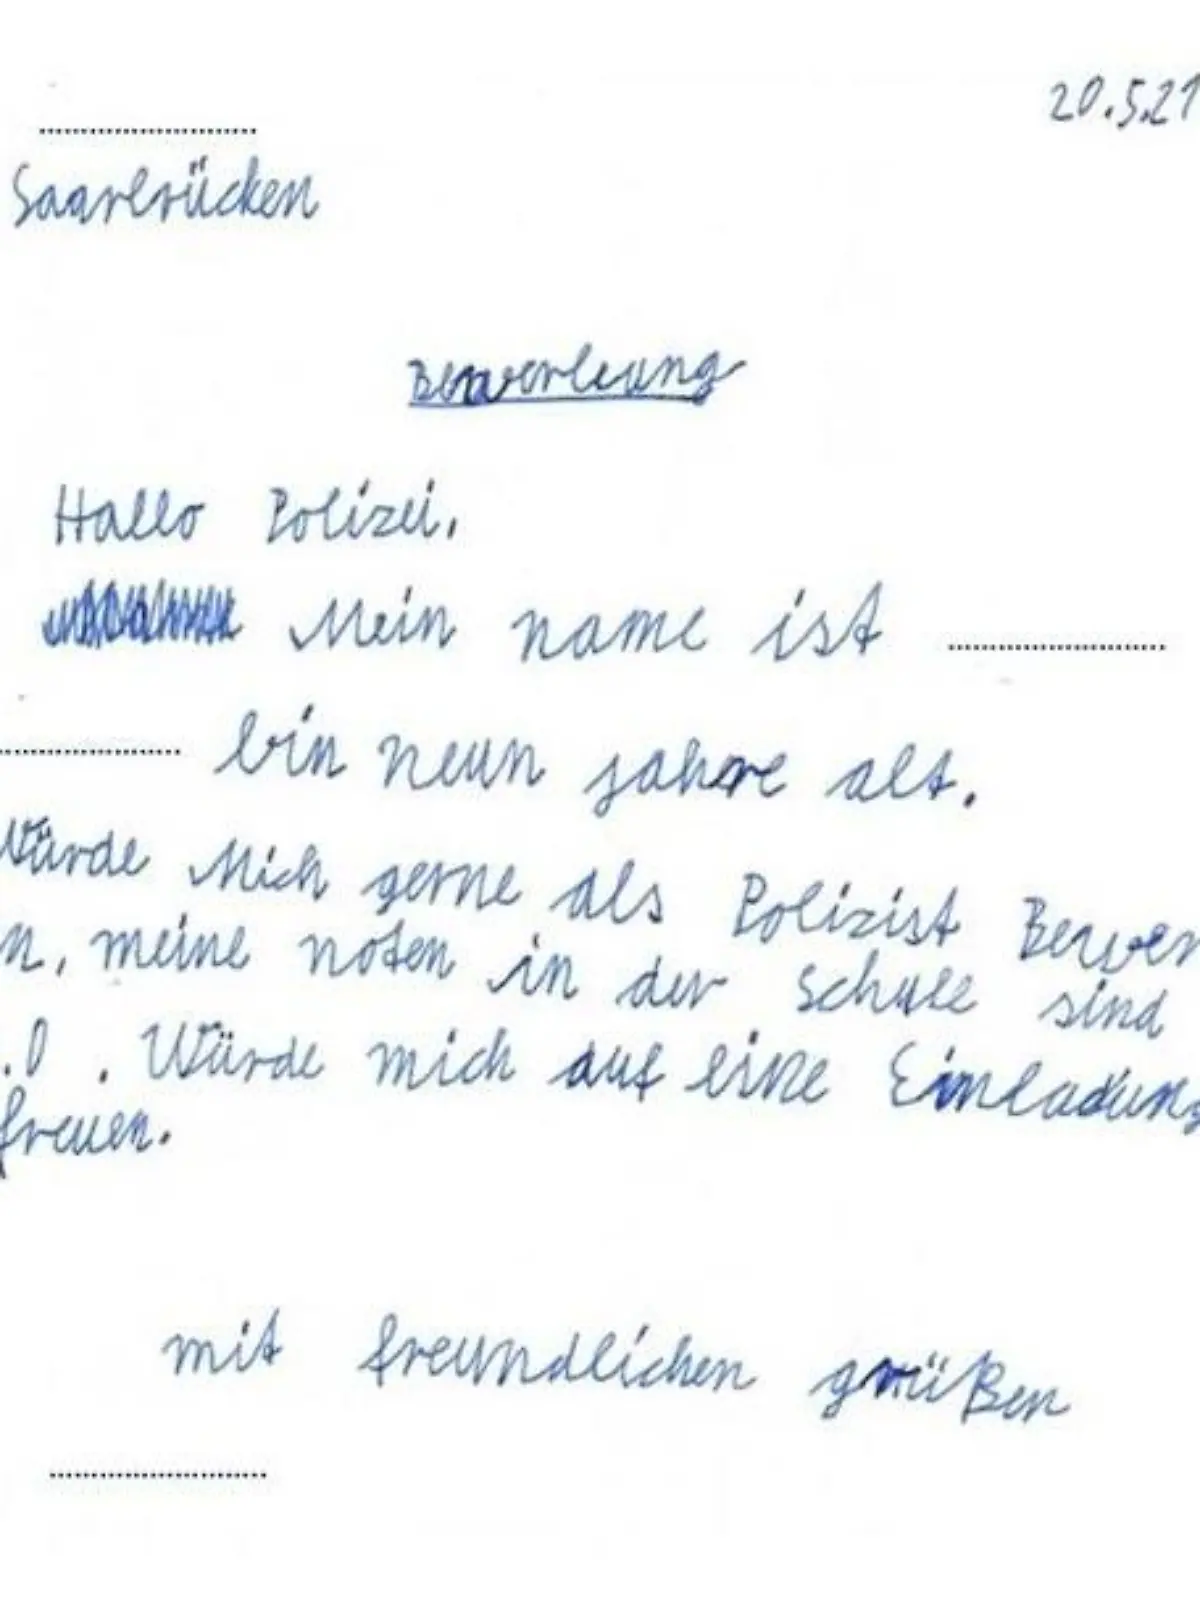 20.5.21
Saarbrücken
Bewerbung
Hallo Polizei.
Mein name ist
bin neun jahre alt.
Würde Mich gerne als Polizist Bewer
n, meine noten in der Schule sind
.0 . Würde mich auf eine Einladung
freuen.
mit freundlichen grüßen